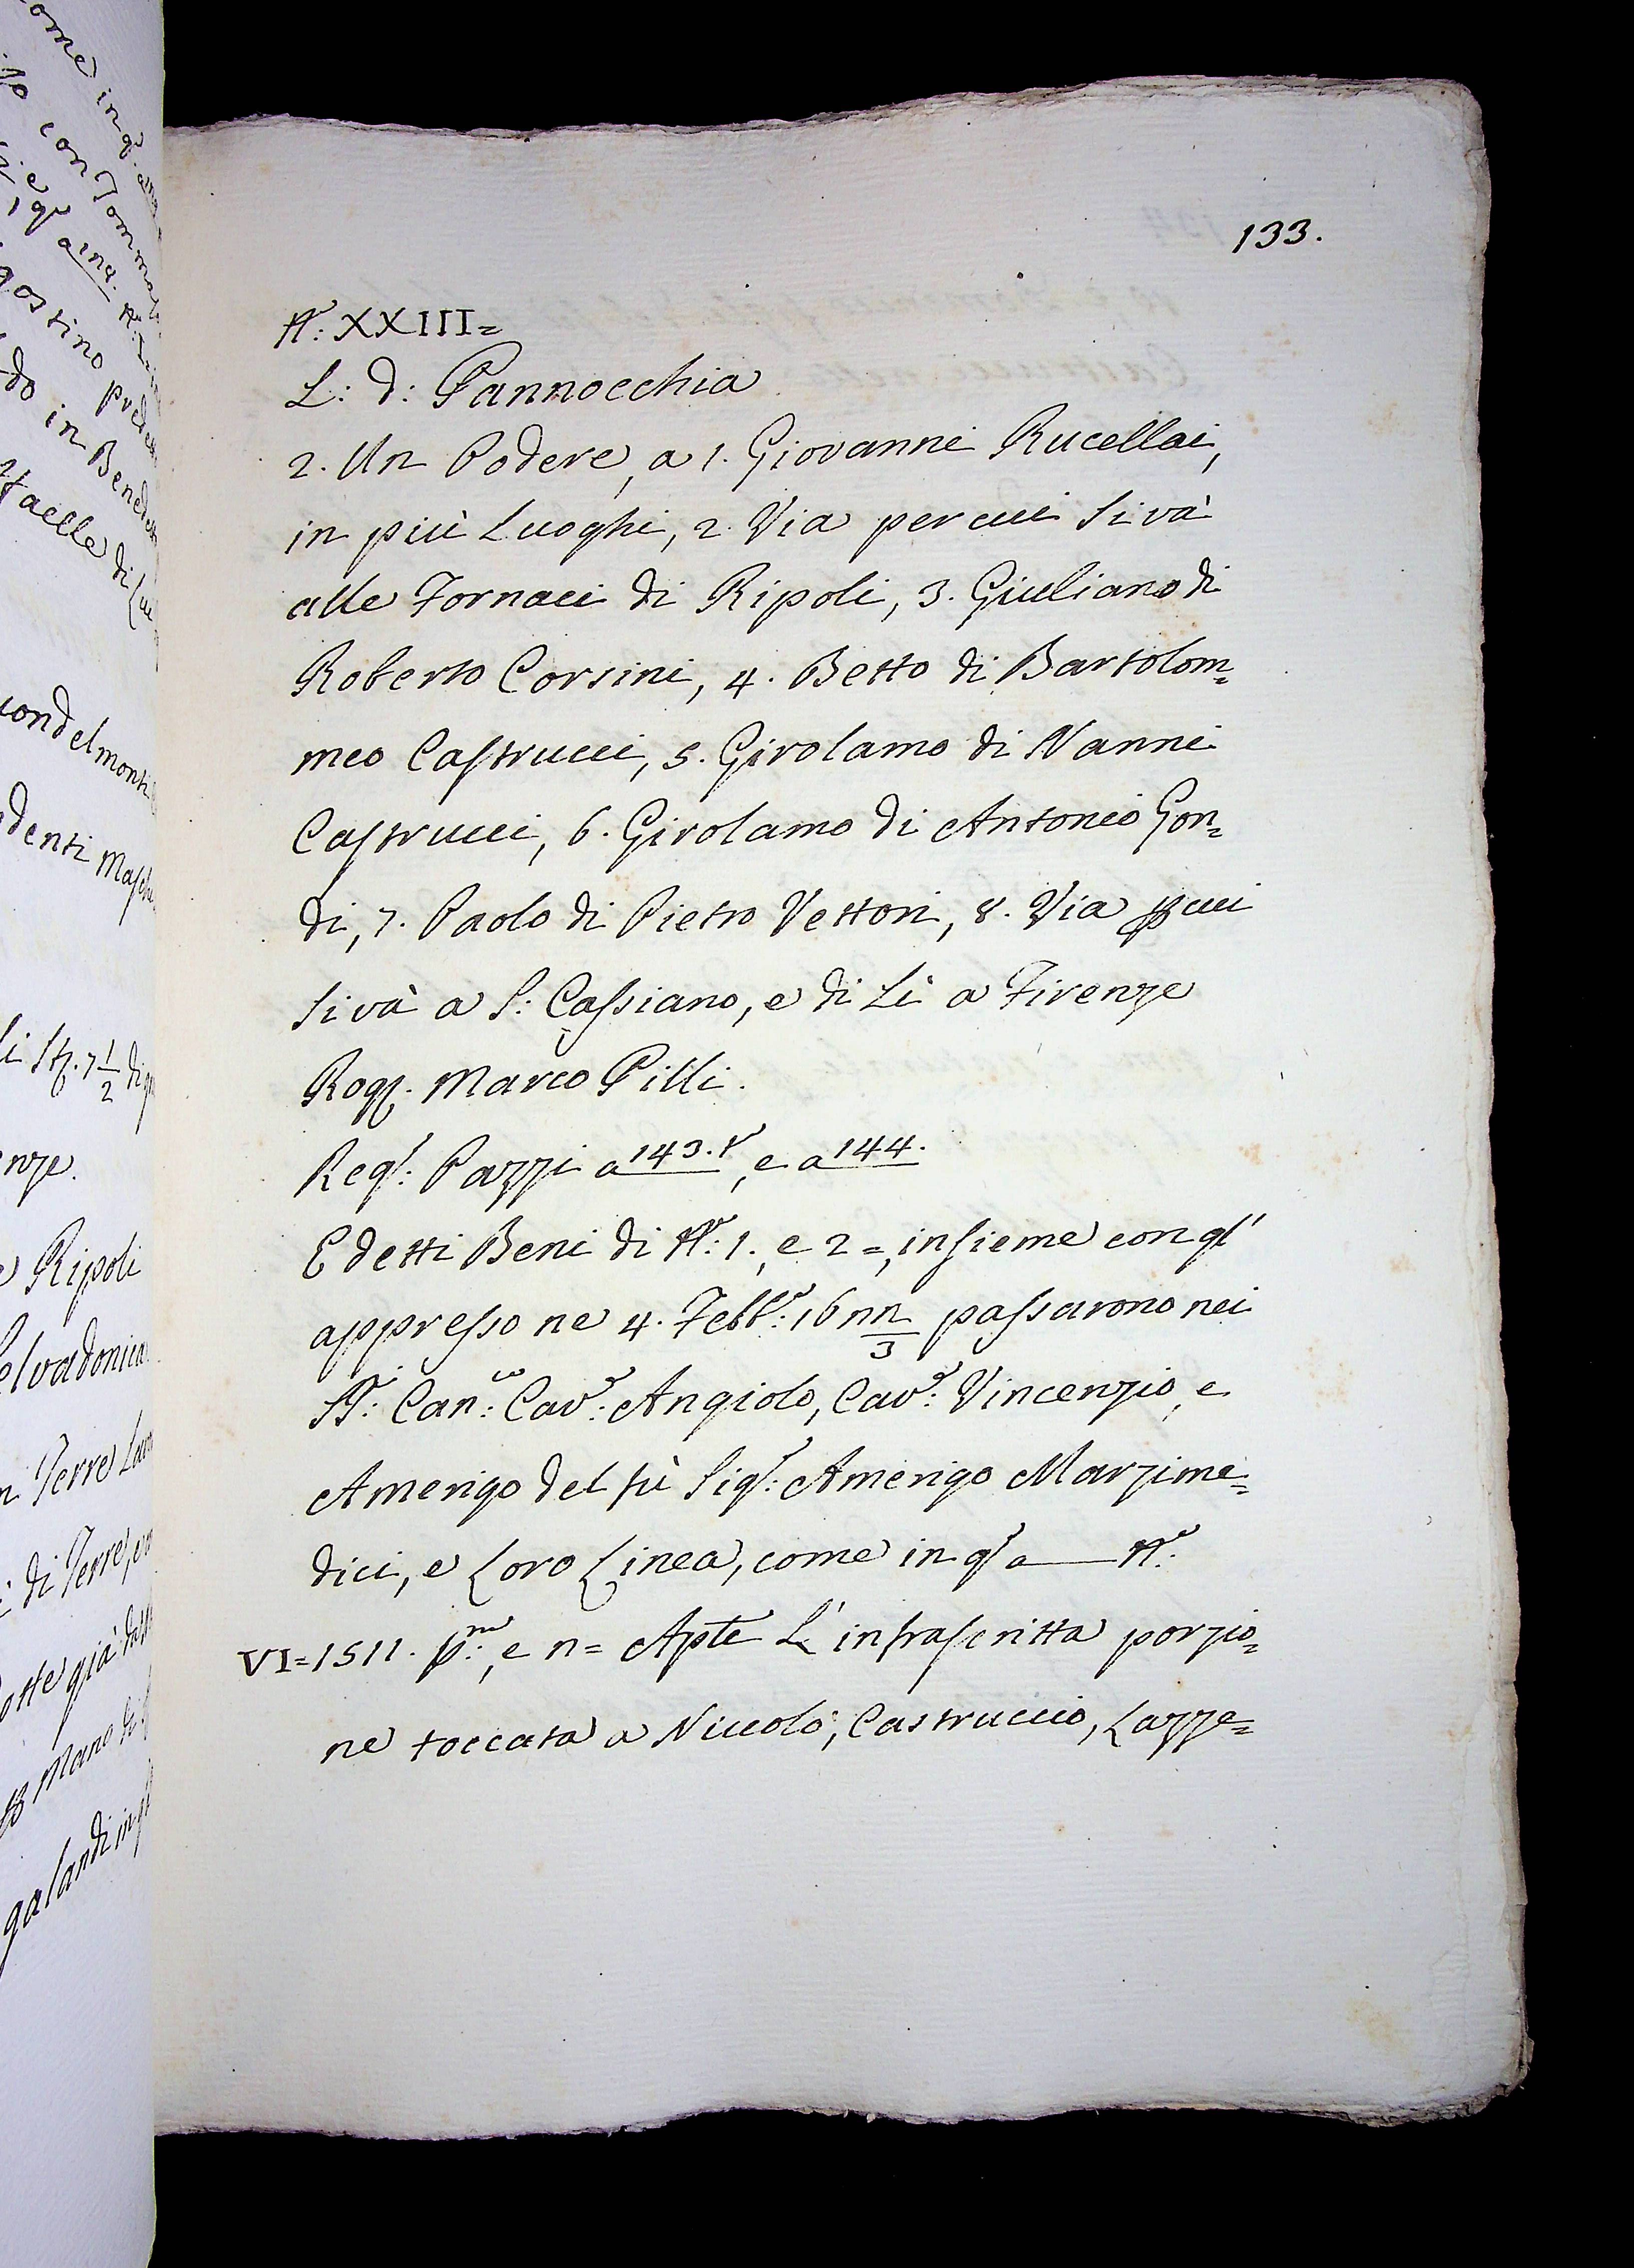 133.
N.º: XXIII=
L: d: Pannocchia
2. Un Podere, a 1. Giovanni Rucellai,
in più Luoghi, 2. Via per cui si và
alle Fornaci di Ripoli, 3. Giuliano di
Roberto Corsini, 4. Betto di Bartolom=
meo Castrucci, 5. Girolamo di Nanni
Castrucci, 6. Girolamo di Antonio Gon=
di, 7. Paolo di Pietro Vettori, 8. Via p cui
si và a S: Cassiano, e di Lì a Firenze
Rog. Marco Pilli.
Reg: Pazzi a 143.t, e a 144.
E detti Beni di N.º: 1., e 2=, insieme con ql'
appresso ne 4. Febb.º: 16nn/3 passarono nei
SS.ri: Can.co: Cav.e: Angiolo, Cav.e: Vincenzio, e
Amerigo del fù Sig.r: Amerigo Marzime=
dici, e Loro Linea, come in q a — N.º:
VI=1511. p.mo:, e n= Apte L'infrascritta porzio=
ne toccata a Niccolò, Castruccio, Lazze=
come in q.
con Tommaso
e q
gostino pred
do in Benedetto
ffaello di
uondelmonti
denti Masch
di St. 7 1/2 di
nze.
Ripoli
Selvadonica
Terre Lavo
di Terre, e
otte già
p mano di
galandi in